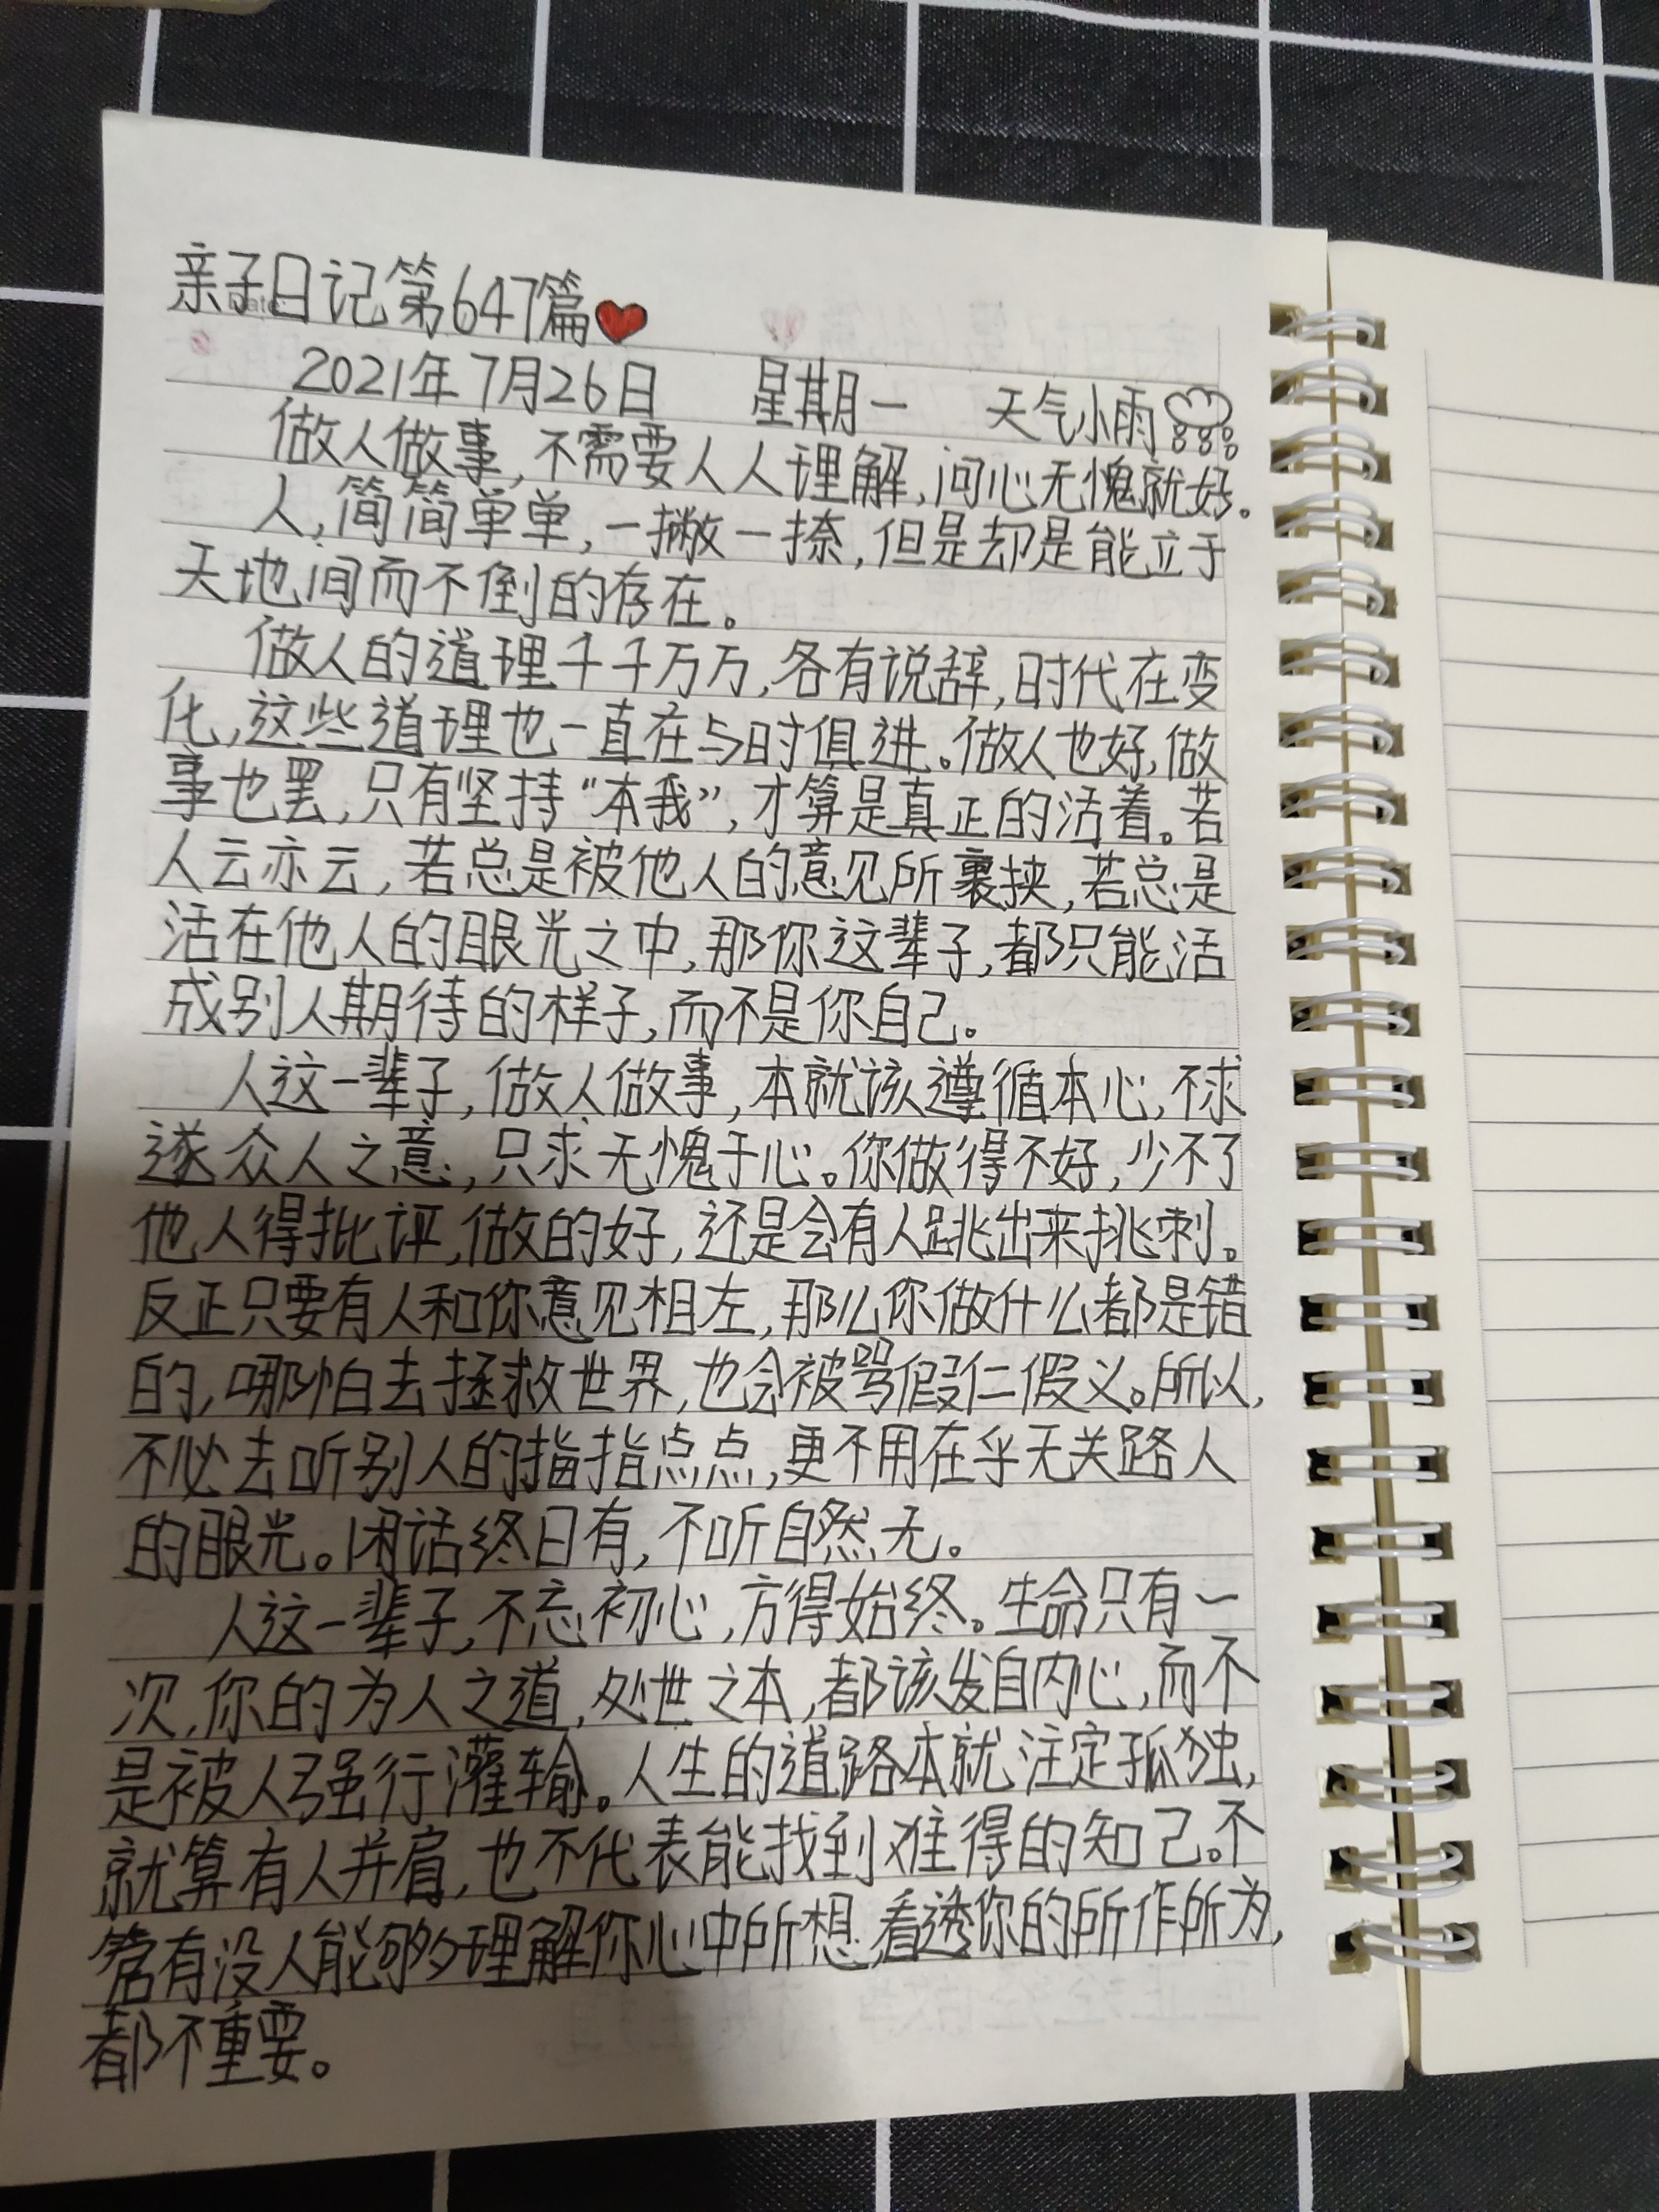 亲子日记第647篇
2021年7月26日 星期一 天气小雨
做人做事,不需要人人理解,问心无愧就好。
人,简简单单,一撇一捺,但是却是能立于
天地间而不倒的存在。
做人的道理千千万万,各有说辞,时代在变
化,这些道理也一直在与时俱进。做人也好,做
事也罢,只有坚持“本我”,才算是真正的活着。若
人云亦云,若总是被他人的意见所裹挟,若总是
活在他人的眼光之中,那你这辈子,都只能活
成别人期待的样子,而不是你自己。
人这一辈子,做人做事,本就该遵循本心,不求
遂众人之意,只求无愧于心。你做得不好,少不了
他人得批评,做的好,还是会有人跳出来挑刺。
反正只要有人和你意见相左,那么你做什么都是错
的,哪怕去拯救世界,也会被骂假仁假义。所以,
不必去听别人的指指点点,更不用在乎无关路人
的眼光。闲话终日有,不听自然无。
人这一辈子,不忘初心,方得始终。生命只有一
次,你的为人之道,处世之本,都该发自内心,而不
是被人强行灌输。人生的道路本就注定孤独,
就算有人并肩,也不代表能找到难得的知己。不
管有没人能够理解你心中所想,看透你的所作所为,
都不重要。